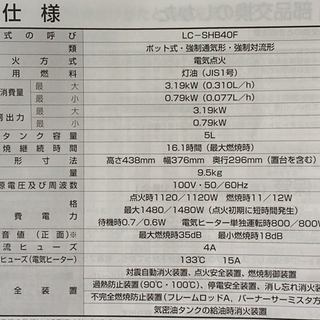 仕様
式の呼び LC-SHB40F
類 ポット式・強制通気形・強制対流形
火方式 電気点火
用燃料 灯油 (JIS1号)
消費量 最大 3.19kW (0.310L/h)
最小 0.79kW (0.077L/h)
房出力 最大 3.19kW
最小 0.79kW
タンク容量 5L
燃焼継続時間 16.1時間 (最大燃焼時)
形寸法 高さ438mm 幅376mm 奥行296mm (置台を含む)
9.5kg
源電圧及び周波数 100V・50/60Hz
格 点火時1120/1120W 燃焼時11/12W
費電力 最大1480/1480W (点火初期に短時間発生)
待機時0.7/0.6W 電気ヒーター単独運転時800/800W
音値 (正面)※ 最大燃焼時35dB 最小燃焼時18dB
流ヒューズ 4A
ヒューズ(電気ヒーター) 133℃ 15A
全装置 対震自動消火装置、点火安全装置、燃焼制御装置
過熱防止装置(90℃・100℃)、停電安全装置、消し忘れ消火装
不完全燃焼防止装置 (フレームロッドA、バーナーサーミスタ方
気密油タンクの給油時消火装置